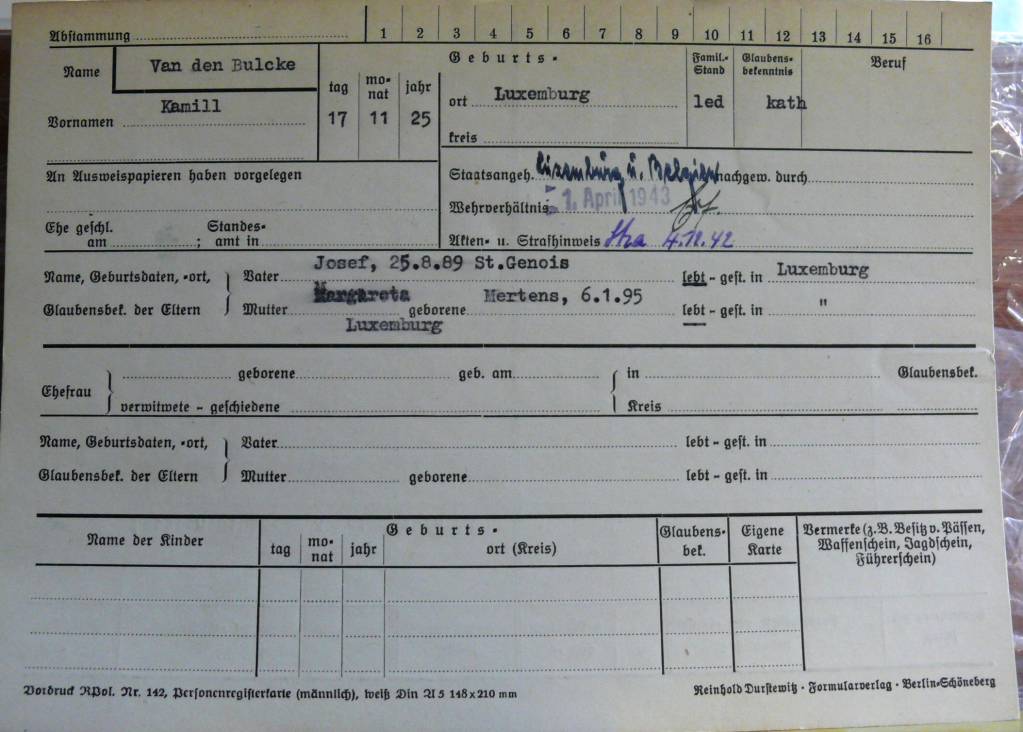 Abstammung 1 2 3 4 5 6 7 8 9 10 11 12 13 14 15 16
Name Van den Bulcke
Vornamen Kamill
Geburts-
tag monat jahr
17 11 25
ort Luxemburg
kreis
Famil.-Stand
led
Glaubens-
bekenntnis
kath
Beruf
An Ausweispapieren haben vorgelegen
Staatsangeh. Luxemburg u. Belgien nachgew. durch
1. April 1943
Wehrverhältnis
Ehe geschl. Standes-
am ; amt in
Akten- u. Strafhinweis 4.12.42
Name, Geburtsdaten, -ort, Vater Josef, 25.8.89 St.Genois lebt - gest. in Luxemburg
Glaubensbek. der Eltern Mutter Margareta geborene Mertens, 6.1.95 lebt - gest. in "
Luxemburg
Ehefrau geborene geb. am in Glaubensbek.
verwitwete - geschiedene Kreis
Name, Geburtsdaten, -ort, Vater lebt - gest. in
Glaubensbek. der Eltern Mutter geborene lebt - gest. in
Name der Kinder
Geburts-
tag monat jahr ort (Kreis)
Glaubens-
bek.
Eigene
Karte
Vermerke (z.B. Besitz v. Pässen,
Waffenschein, Jagdschein,
Führerschein)
Vordruck RPol. Nr. 142, Personenregisterkarte (männlich), weiß Din A 5 148x210 mm
Reinhold Durstewitz · Formularverlag · Berlin-Schöneberg